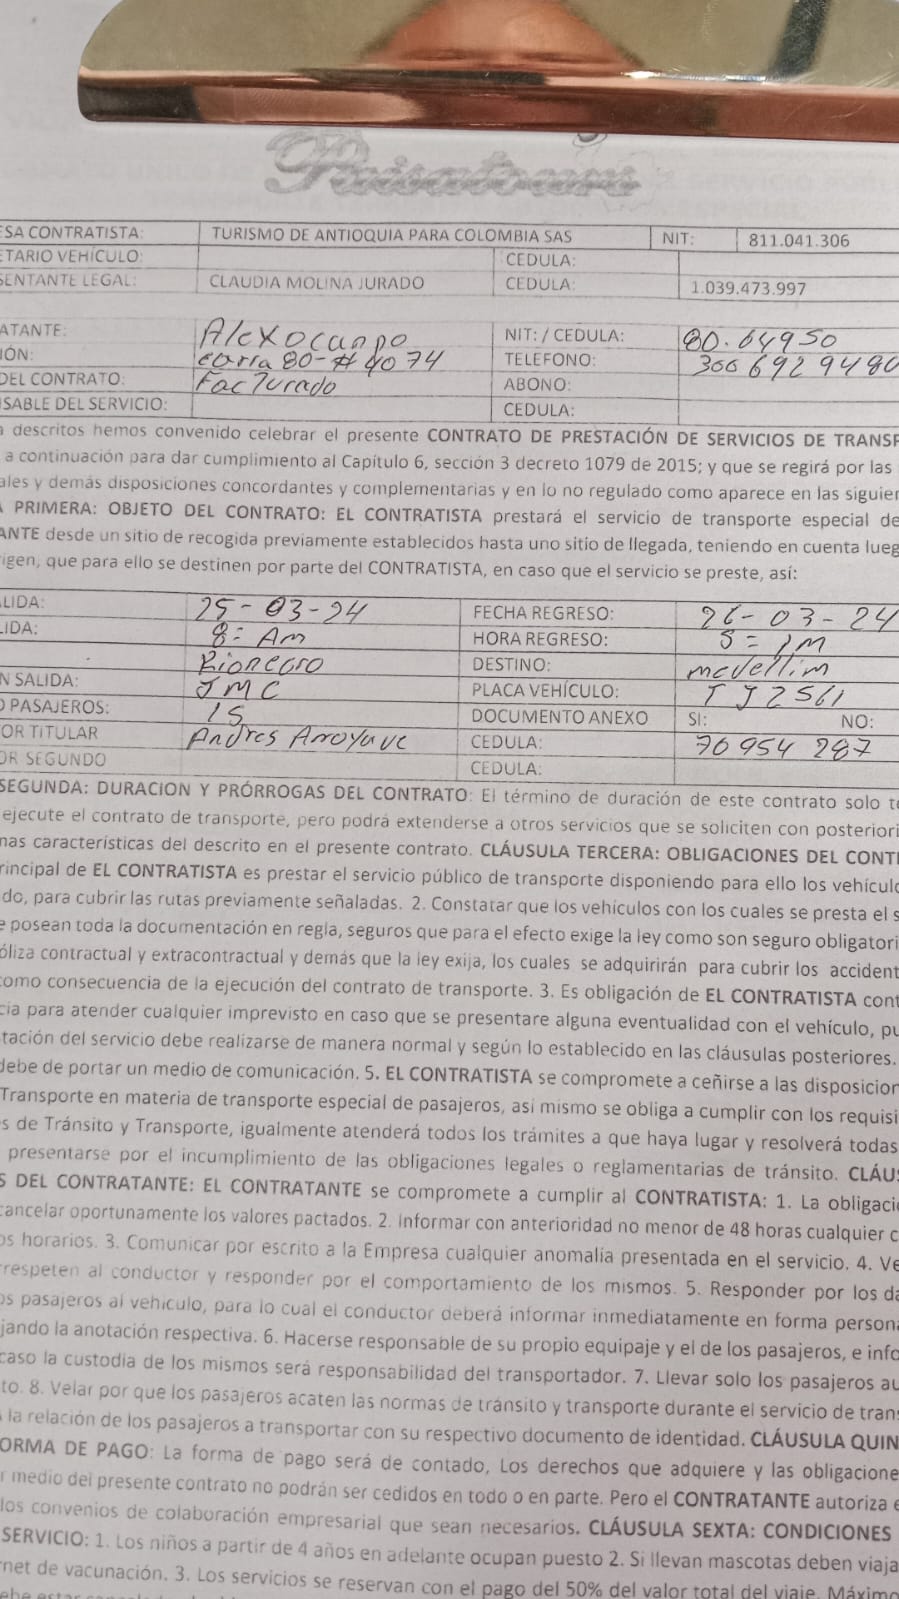 Paisatours
ESA CONTRATISTA: TURISMO DE ANTIOQUIA PARA COLOMBIA SAS NIT: 811.041.306
ETARIO VEHÍCULO: CEDULA:
SENTANTE LEGAL: CLAUDIA MOLINA JURADO CEDULA: 1.039.473.997
ATANTE: Alexocanpo NIT: / CEDULA: 80.64950
IÓN: carra 80-# 4074 TELEFONO: 300 6929480
DEL CONTRATO: Facturado ABONO:
SABLE DEL SERVICIO: CEDULA:
a descritos hemos convenido celebrar el presente CONTRATO DE PRESTACIÓN DE SERVICIOS DE TRANSP
a continuación para dar cumplimiento al Capítulo 6, sección 3 decreto 1079 de 2015; y que se regirá por las
ales y demás disposiciones concordantes y complementarias y en lo no regulado como aparece en las siguien
A PRIMERA: OBJETO DEL CONTRATO: EL CONTRATISTA prestará el servicio de transporte especial de
ANTE desde un sitio de recogida previamente establecidos hasta uno sitio de llegada, teniendo en cuenta lueg
rigen, que para ello se destinen por parte del CONTRATISTA, en caso que el servicio se preste, así:
LIDA: 25-03-24 FECHA REGRESO: 26-03-24
LIDA: 8= Am HORA REGRESO: 5= PM
Rionegro DESTINO: medellim
N SALIDA: JMC PLACA VEHÍCULO: TJ2561
O PASAJEROS: 15 DOCUMENTO ANEXO SI: NO:
OR TITULAR Andres Arroyave CEDULA: 70954 287
OR SEGUNDO CEDULA:
SEGUNDA: DURACION Y PRÓRROGAS DEL CONTRATO: El término de duración de este contrato solo te
ejecute el contrato de transporte, pero podrá extenderse a otros servicios que se soliciten con posteriori
mas características del descrito en el presente contrato. CLÁUSULA TERCERA: OBLIGACIONES DEL CONTR
rincipal de EL CONTRATISTA es prestar el servicio público de transporte disponiendo para ello los vehículo
do, para cubrir las rutas previamente señaladas. 2. Constatar que los vehículos con los cuales se presta el s
e posean toda la documentación en regla, seguros que para el efecto exige la ley como son seguro obligatori
óliza contractual y extracontractual y demás que la ley exija, los cuales se adquirirán para cubrir los accident
como consecuencia de la ejecución del contrato de transporte. 3. Es obligación de EL CONTRATISTA cont
cia para atender cualquier imprevisto en caso que se presentare alguna eventualidad con el vehículo, pu
tación del servicio debe realizarse de manera normal y según lo establecido en las cláusulas posteriores.
debe de portar un medio de comunicación. 5. EL CONTRATISTA se compromete a ceñirse a las disposicion
Transporte en materia de transporte especial de pasajeros, así mismo se obliga a cumplir con los requisi
s de Tránsito y Transporte, igualmente atenderá todos los trámites a que haya lugar y resolverá todas
presentarse por el incumplimiento de las obligaciones legales o reglamentarias de tránsito. CLÁUS
S DEL CONTRATANTE: EL CONTRATANTE se compromete a cumplir al CONTRATISTA: 1. La obligació
cancelar oportunamente los valores pactados. 2. Informar con anterioridad no menor de 48 horas cualquier c
os horarios. 3. Comunicar por escrito a la Empresa cualquier anomalía presentada en el servicio. 4. Ve
rrespeten al conductor y responder por el comportamiento de los mismos. 5. Responder por los da
os pasajeros al vehículo, para lo cual el conductor deberá informar inmediatamente en forma persona
jando la anotación respectiva. 6. Hacerse responsable de su propio equipaje y el de los pasajeros, e info
caso la custodia de los mismos será responsabilidad del transportador. 7. Llevar solo los pasajeros au
to. 8. Velar por que los pasajeros acaten las normas de tránsito y transporte durante el servicio de trans
la relación de los pasajeros a transportar con su respectivo documento de identidad. CLÁUSULA QUIN
ORMA DE PAGO: La forma de pago será de contado, Los derechos que adquiere y las obligacione
r medio del presente contrato no podrán ser cedidos en todo o en parte. Pero el CONTRATANTE autoriza e
los convenios de colaboración empresarial que sean necesarios. CLÁUSULA SEXTA: CONDICIONES
SERVICIO: 1. Los niños a partir de 4 años en adelante ocupan puesto 2. Si llevan mascotas deben viaja
rnet de vacunación. 3. Los servicios se reservan con el pago del 50% del valor total del viaje. Máximo